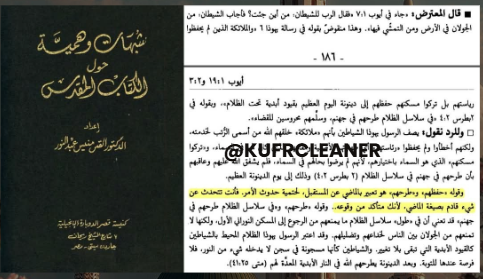 شبهات وهمية
حول
الكتاب المقدس
إعداد
الدكتور القس منيس عبد النور
كنيسة قصر الدوبارة الإنجيلية
جاردن سيتي - مصر
■ قال المعترض: «جاء في أيوب ١:٧ «فقال الرب للشيطان: من أين جئت؟ فأجاب الشيطان: من
الجولان في الأرض ومن التمشّي فيها». وهذا منقوض بقوله في رسالة يهوذا ٦ «والملائكة الذين لم يحفظوا
- ١٨٦ -
أيوب ١:١٩ و٢:٣
رياستهم بل تركوا مسكنهم حفظهم إلى دينونة اليوم العظيم بقيود أبدية تحت الظلام»، وبقوله في
٢بطرس ٢:٤ «في سلاسل الظلام طرحهم في جهنم، وسلّمهم محروسين للقضاء».
■ وللرد نقول: يصف الرسول يهوذا الشياطين بأنهم «ملائكة» خلقهم الله من أسمى الرتب لخدمته،
@KUFRCLEANER
مسكنهم، الذي هو السماء باختيارهم، لأنهم لم يرضوا بحالهم في السماء، فلم يشفق الله عليهم وعاقبهم
بأن طرحهم في جهنم في سلاسل الظلام (٢بطرس ٢:٤) وذلك إلى يوم الدينونة العظيم.
وقوله «حفظهم» و«طرحهم» هو تعبير بالماضي عن المستقبل، لحتمية حدوث الأمر. فأنت تتحدث عن
شيء قادم بصيغة الماضي، لأنك متأكد من وقوعه. وقوله «طرحهم» و«في سلاسل الظلام طرحهم في
جهنم» قد تعني أن في «طول» سلاسل الظلام ما يمنعهم من الرجوع إلى المسكن النوراني الأول، ولكنها لا
تمنعهم من الجولان بين الناس لخداعهم وتضليلهم. وقد اعتبر الرسول يهوذا الظلام المحيط بالشياطين
كالقيود الأبدية التي تبقى بلا تغيير. والشياطين كأنها مسجونة في سجن لا يدخله شيء من النور، فلا
فرصة عندها للتوبة. وبعد الدينونة يطرحهم الله في النار الأبدية المعدّة لهم (متى ٢٥:٤١).